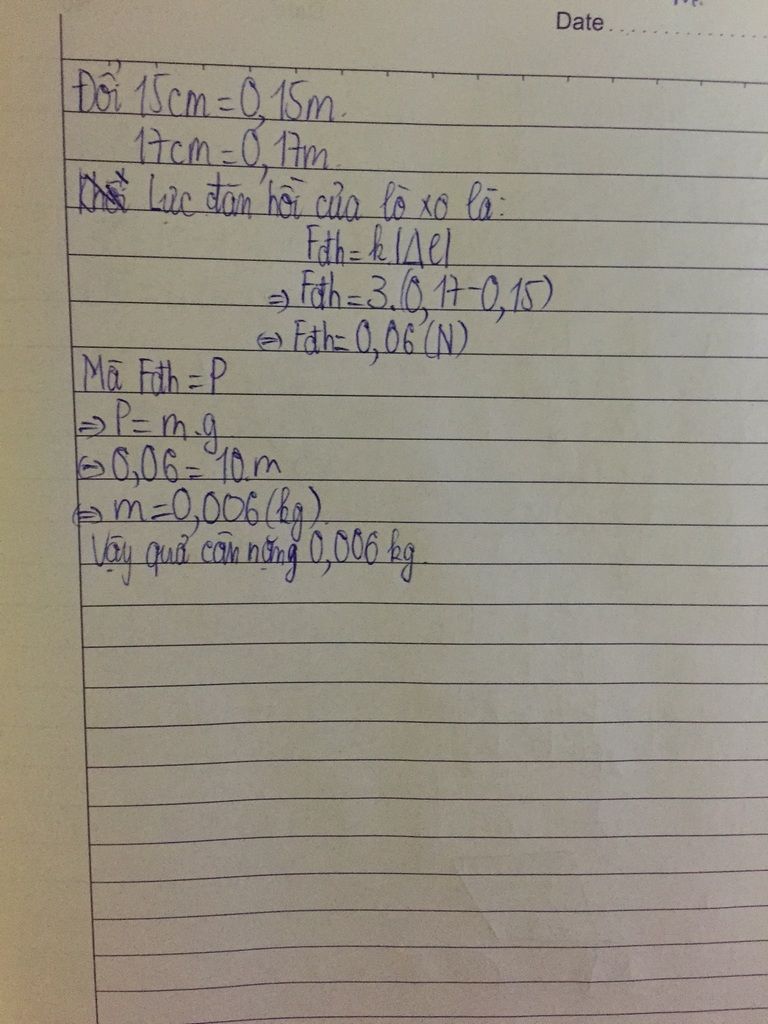 Date
Đổi 15cm = 0,15m.
17cm = 0,17m.
Lực đàn hồi của lò xo là:
Fđh = k|Δl|
⇒ Fđh = 3.(0,17-0,15)
⇔ Fđh = 0,06 (N)
Mà Fđh = P
⇒ P = m.g
⇔ 0,06 = 10.m
⇔ m = 0,006 (kg)
Vậy quả cân nặng 0,006 kg.